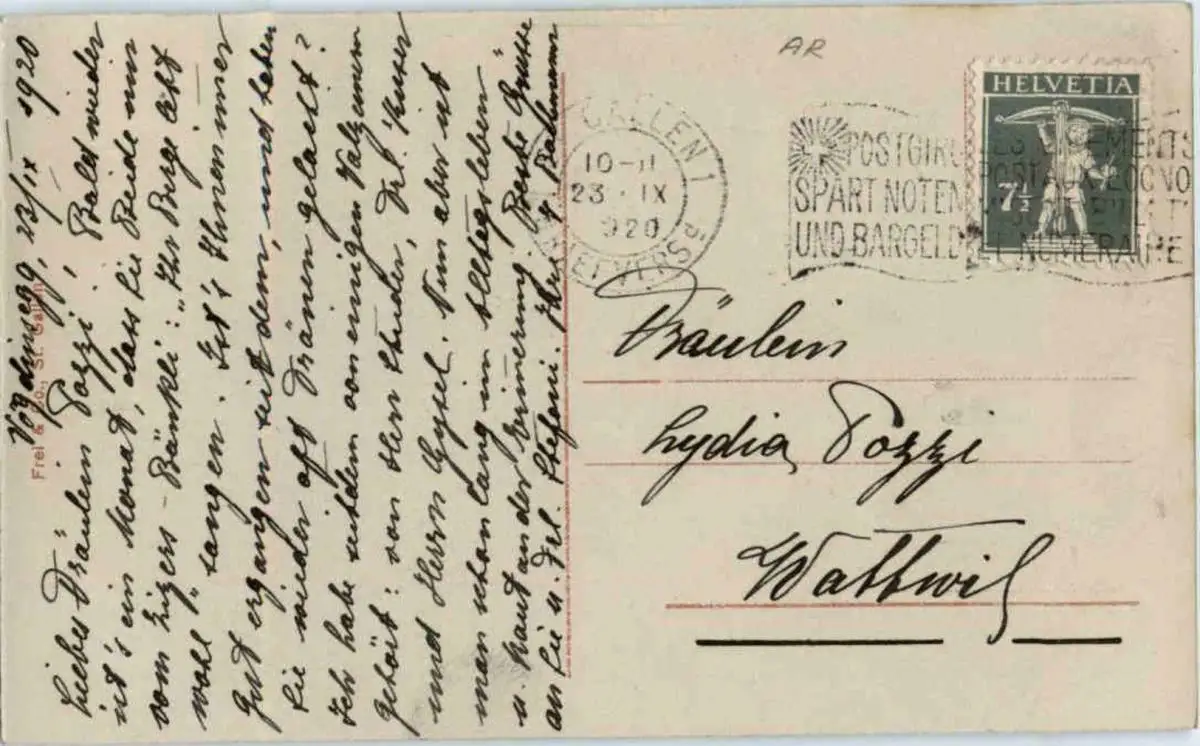 Vögelinsegg, 23/IX 1920
Liebes Fräulein Pozzi, Bald wieder
ist's ein Monat, dass Sie Beide uns
vom Zigers-Bänkli: „Ihr Berge lebt
wohl" sangen. Ist's Ihnen immer
gut ergangen seitdem, und haben
Sie wieder oft Tränen gelacht?
Ich habe seitdem von einigen
gehört: von Herr Studer, Frl.
und Herrn Gysel. Nun aber ist
man schon lang im Alltagsleben
u. kaut an der Erinnerung. Beste Grüsse
an Sie u. Frl. Stefani. Ihr
Frei & Co., St. Gallen
AR
HELVETIA
7½
ST. GALLEN 1
10-11
23. IX
1920
BRIEFVERSAND
POSTGIRO
SPART NOTEN
UND BARGELD
NUMERAIRE
Fräulein
Lydia Pozzi
Wattwil